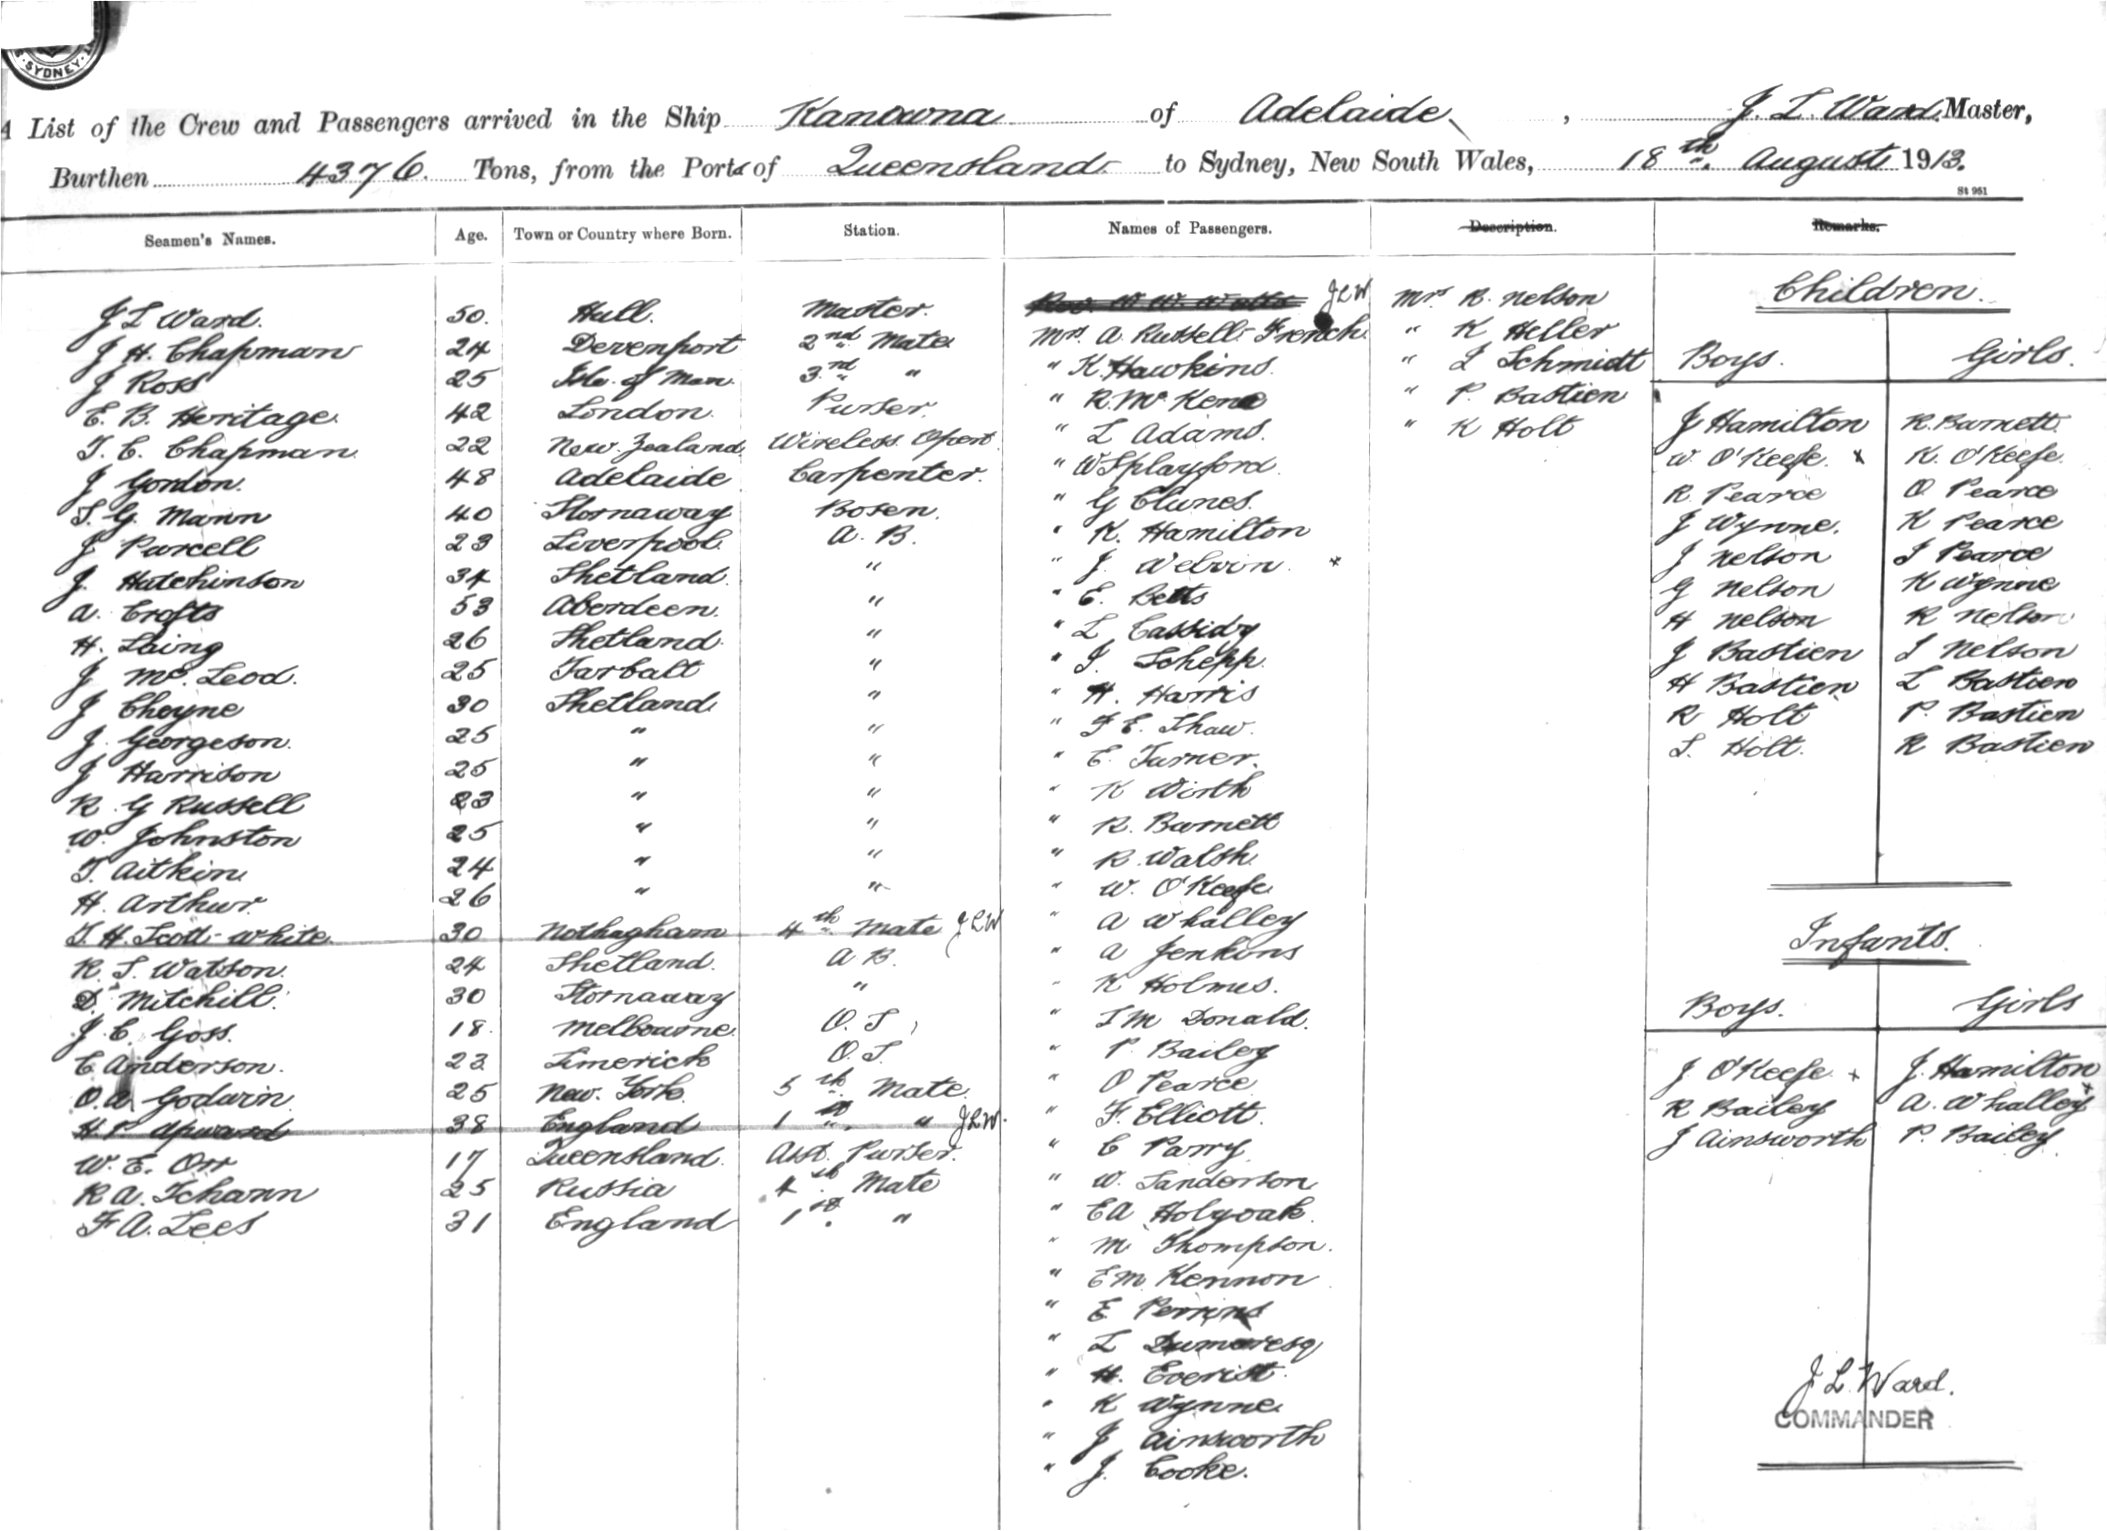 SYDNEY
A List of the Crew and Passengers arrived in the Ship Kanowna of Adelaide, J. L. Ward. Master,
Burthen 4376. Tons, from the Ports of Queensland. to Sydney, New South Wales, 18th. August 1913.
St 961
Seamen's Names. Age. Town or Country where Born. Station. Names of Passengers. Description. Remarks.
J L Ward. 50. Hull. Master.
J H. Chapman 24 Devenport 2nd Mate
J Ross 25 Isle of Man. 3rd "
E. B. Heritage. 42 London. Purser.
T. C. Chapman 22 New Zealand Wireless Opert
J Gordon. 48 Adelaide Carpenter.
S. G. Mann 40 Stornaway Bosen.
J Purcell 23 Liverpool. A. B.
J. Hutchinson 34 Shetland. "
A. Crofts 53 Aberdeen. "
H. Laing 26 Shetland. "
J McLeod. 25 Tarbalt "
J Cheyne 30 Shetland "
J. Georgeson. 25 " "
J Harrison 25 " "
R. G Russell 23 " "
W. Johnston 25 " "
T. Aitkin 24 " "
H. Arthur. 26 " "
T. H. Scott-White. 30 Nothngham 4th Mate JLW
R. S. Watson. 24 Shetland. A B.
D. Mitchill. 30 Stornaway "
J C. Goss. 18. Melbourne. O. S
C. Anderson. 23 Limerick O. S.
O. A. Godwin. 25 New. York. 5th Mate.
H P Upward 38 England 1st " JLW.
W. E. Orr 17 Queensland. Asst. Purser.
R A. Schann 25 Russia 4th Mate
F A. Lees 31 England 1st. "
Rev. W W. Watts JLW
Mrs. A Russell-French.
" K. Hawkins.
" R. McKene
" L Adams.
" W Splayford
" G Clunes.
" K. Hamilton
" J. Welvin. x
" E. Betts
" L Cassidy
" I. Schepp.
" H. Harris
" F E. Shaw.
" E. Turner.
" K Wirth
" R. Barnett
" R Walsh
" W. O'Keefe
" A Whalley
" A Jenkins
" K Holmes.
" I M Donald.
" P. Bailey
" O Pearce
" F. Elliott.
" C Parry
" W. Sanderson
" E A Holyoak.
" M Thompson.
" E M Kennon
" E Perrins
" L Dumaresq
" H. Everist.
" K Wynne
" J Ainsworth
" J. Cooke.
Mrs R. Nelson
" K Heller
" L Schmidt
" P. Bastien
" K Holt
Children.
Boys. Girls.
J Hamilton R. Barnett
W. O'Keefe. x K. O'Keefe.
R. Pearce O. Pearce
J Wynne. K Pearce
J Nelson I Pearce
G Nelson K Wynne
H Nelson R Nelson
J Bastien I Nelson
H Bastien L Bastien
R Holt P. Bastien
S. Holt. R Bastien
Infants.
Boys. Girls
J O'Keefe x J. Hamilton
R Bailey A. Whalley x
J Ainsworth P. Bailey
J L. Ward.
COMMANDER